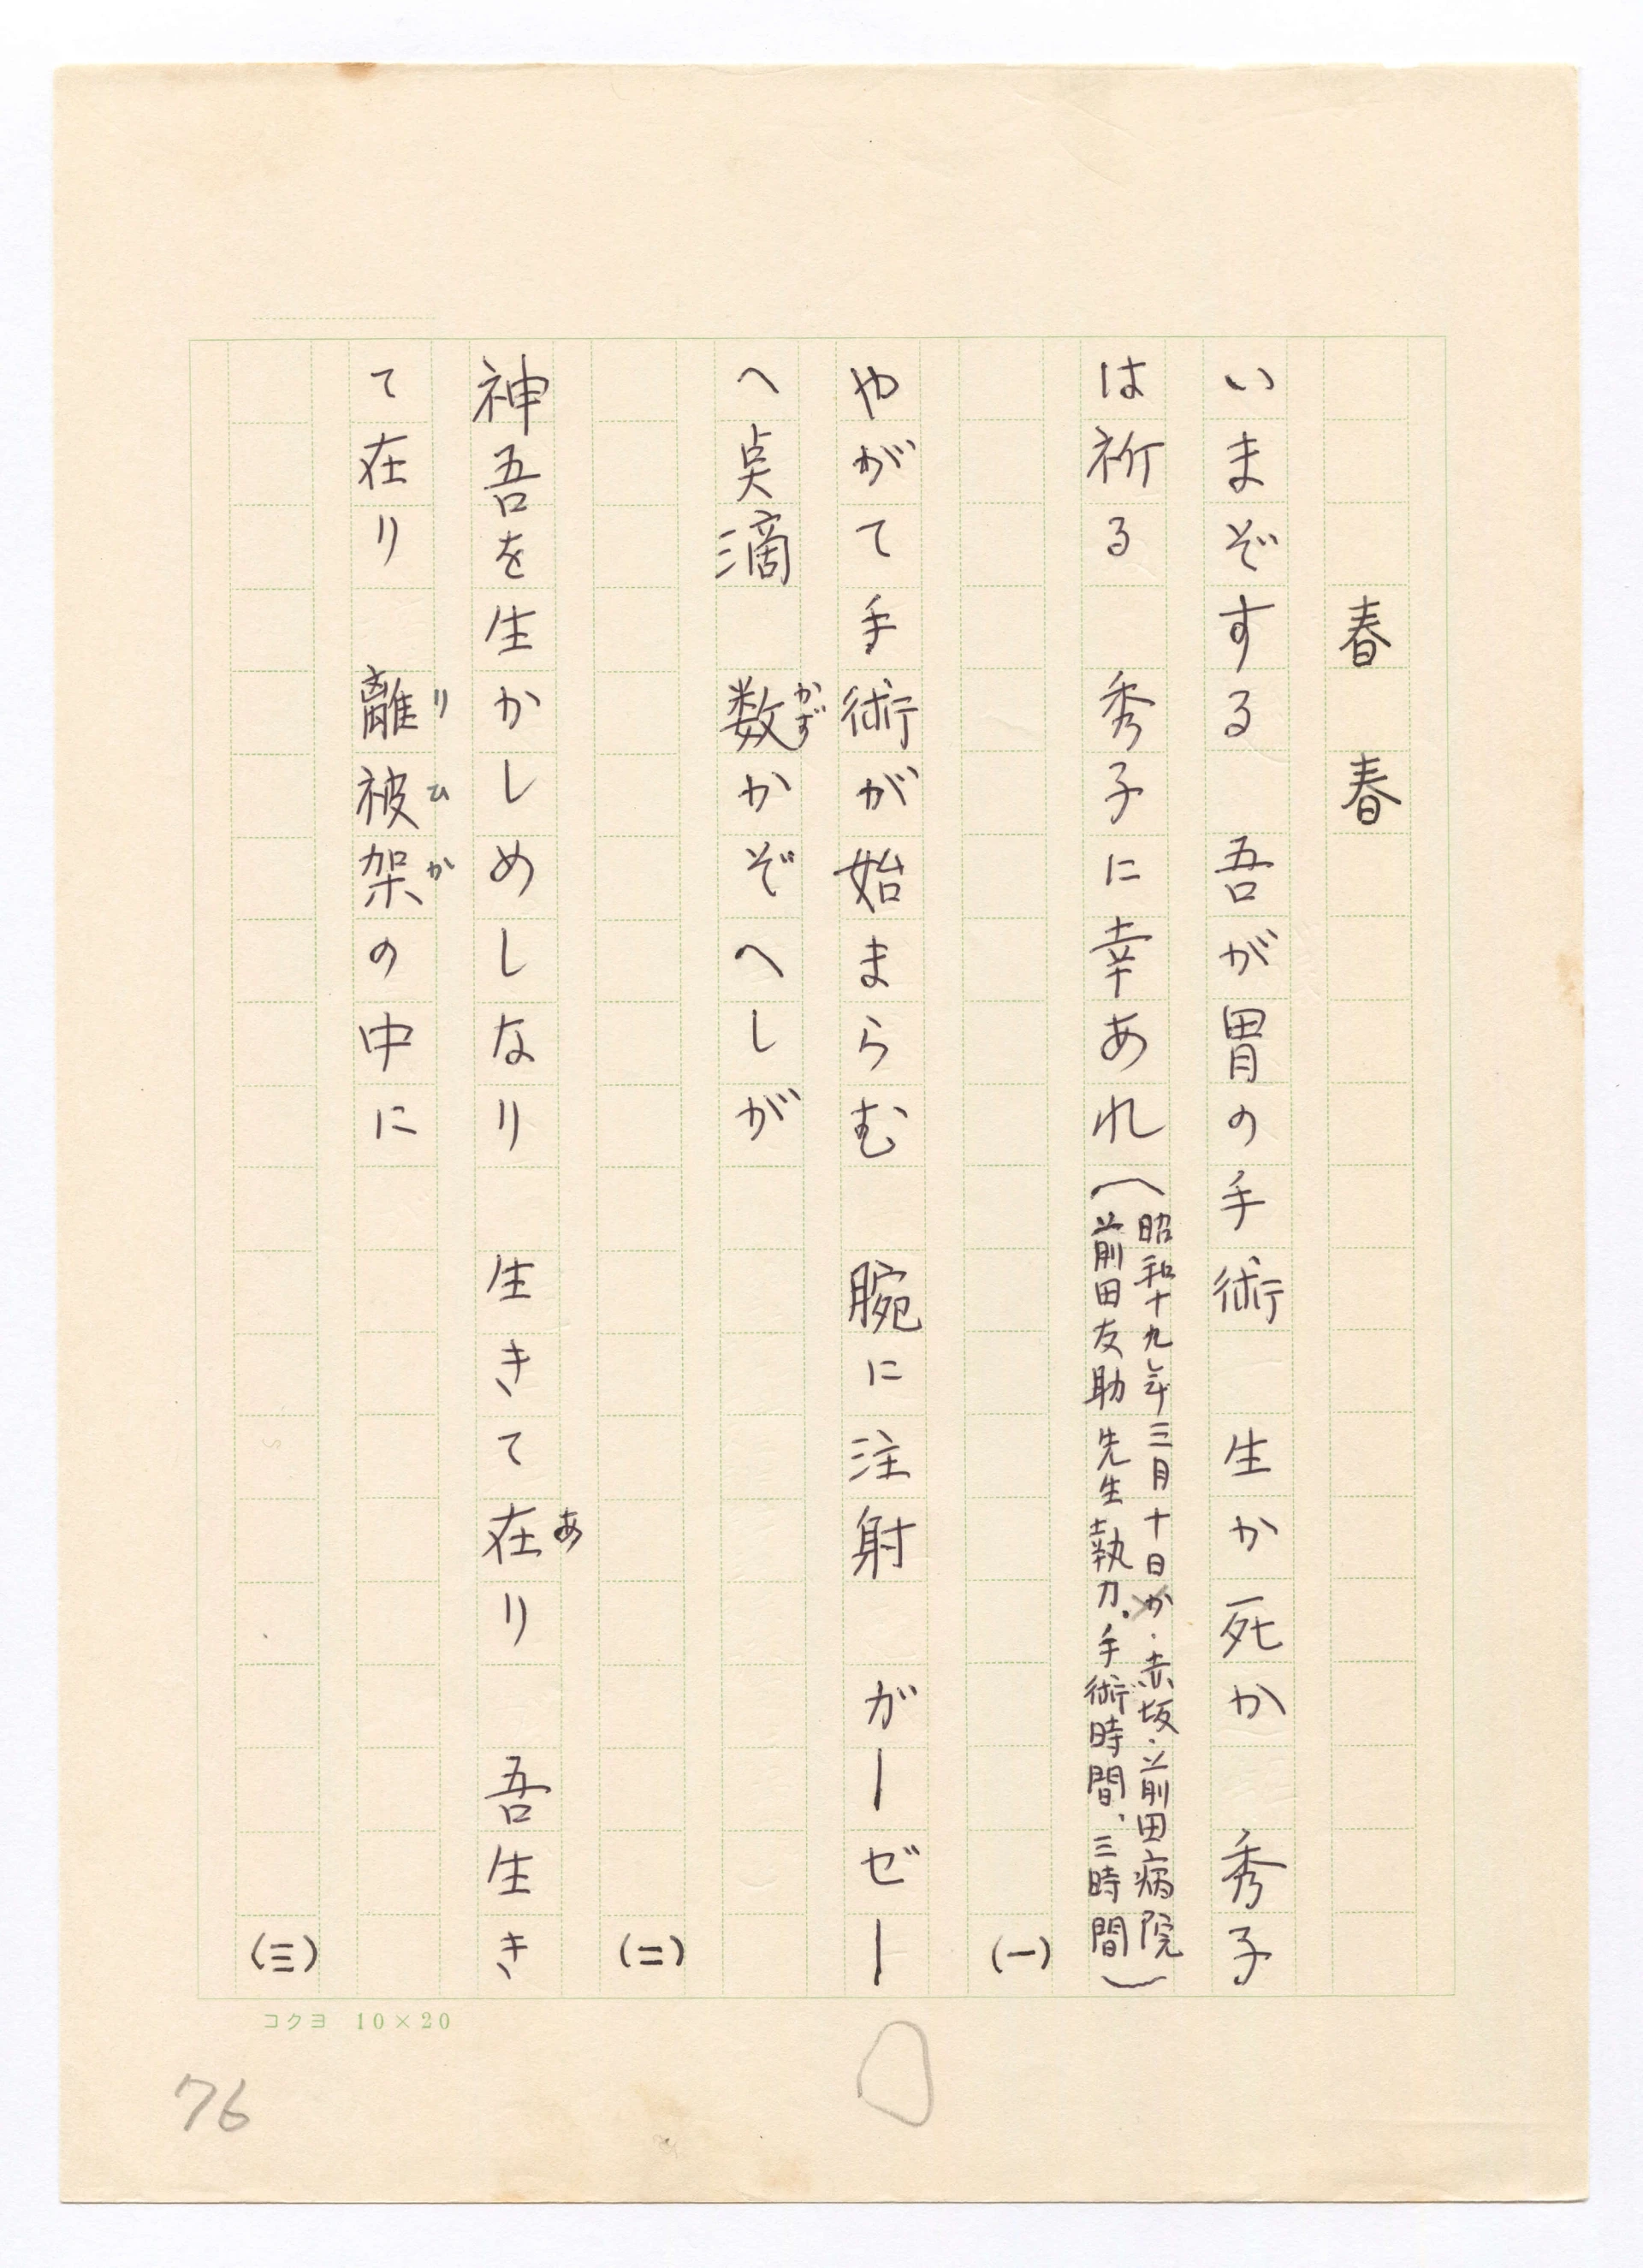 春　春
いまぞする　吾が胃の手術　生か死か　秀子
は祈る　秀子に幸あれ
（昭和十九年三月十日か・赤坂・前田病院
前田友助先生執刀．手術時間、三時間）
(一)
やがて手術が始まらむ　腕に注射　がーぜー
へ点滴　数かぞへしが
かず
(二)
神吾を生かしめしなり　生きて在り　吾生き
あ
て在り　離被架の中に
りひか
(三)
コクヨ　10×20
76